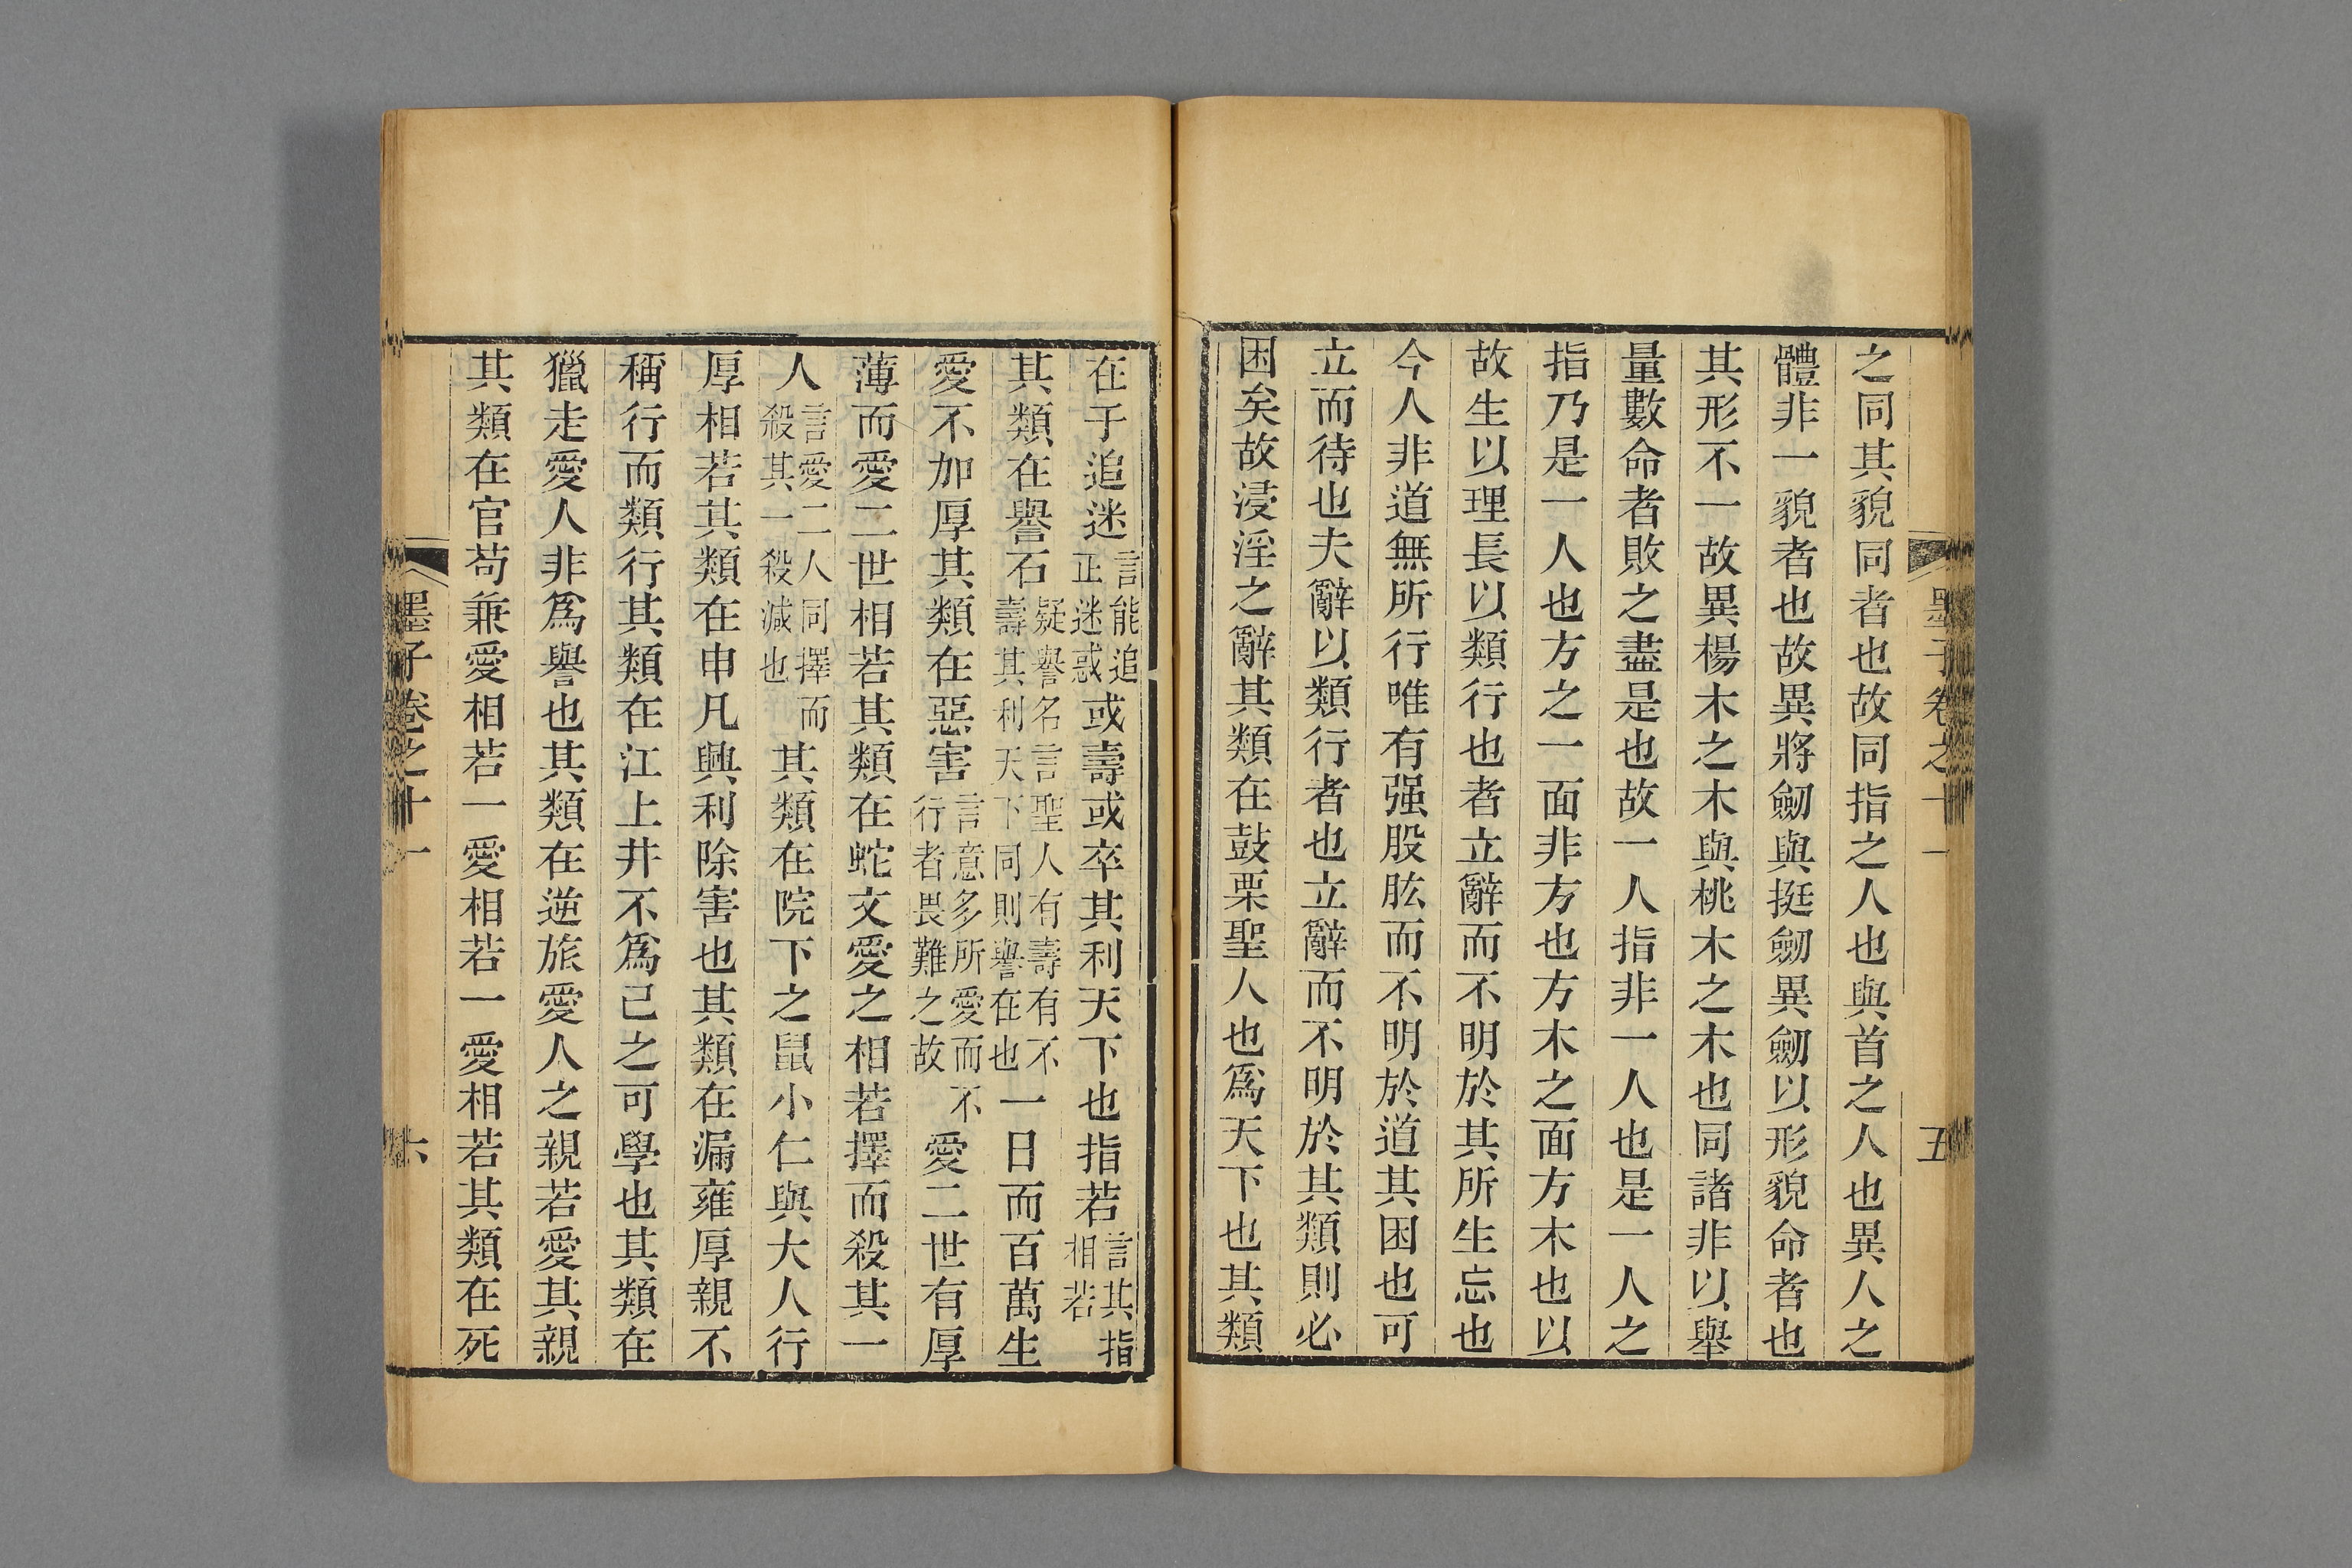 墨子卷之十一 五
之同其貌同者也故同指之人也與首之人也異人之
體非一貌者也故異將劒與挺劒異劒以形貌命者也
其形不一故異楊木之木與桃木之木也同諸非以舉
量數命者敗之盡是也故一人指非一人也是一人之
指乃是一人也方之一面非方也方木之面方木也以
故生以理長以類行也者立辭而不明於其所生忘也
今人非道無所行唯有强股肱而不明於道其困也可
立而待也夫辭以類行者也立辭而不明於其類則必
困矣故浸淫之辭其類在鼓栗聖人也爲天下也其類
在于追迷言能追正迷惑或壽或卒其利天下也指若言其指相若
其類在譽石疑譽名言聖人有壽有不壽其利天下同則譽在也一日而百萬生
愛不加厚其類在惡害言意多所愛而不行者畏難之故愛二世有厚
薄而愛二世相若其類在蛇文愛之相若擇而殺其一
人言愛二人同擇而殺其一殺減也其類在院下之鼠小仁與大人行
厚相若其類在申凡興利除害也其類在漏雍厚親不
稱行而類行其類在江上井不爲己之可學也其類在
獵走愛人非爲譽也其類在逆旅愛人之親若愛其親
其類在官苟兼愛相若一愛相若一愛相若其類在死
墨子卷之十一 六